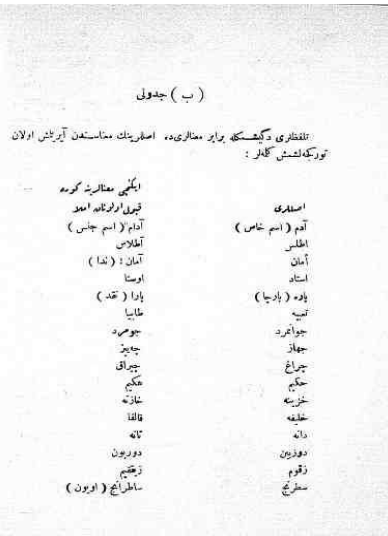 ( ب ) جدولی
تلفظلری دگیشمكله برابر معنالری‌ده اصللرینك معناسندن آیرلمش اولان
توركجه‌لشمش كله‌لر :
ایكنجی معنالرینه كوره
اصللری    قبول اولونان املا
آدم ( اسم خاص )    آدام ( اسم جنس )
اطلس    آطلاس
أمان    آمان : ( ندا )
استاد    اوستا
پاره ( پارچا )    پارا ( نقد )
تعبیه    طابیا
جوانمرد    جومرد
جهاز    چه‌ییز
چراغ    چیراق
حكیم    هكیم
خزینه    خازنه
خلیفه    قالفا
دانه    تانه
دوربین    دوربون
زقوم    زققیم
سطرنج    ساطرانج ( اویون )